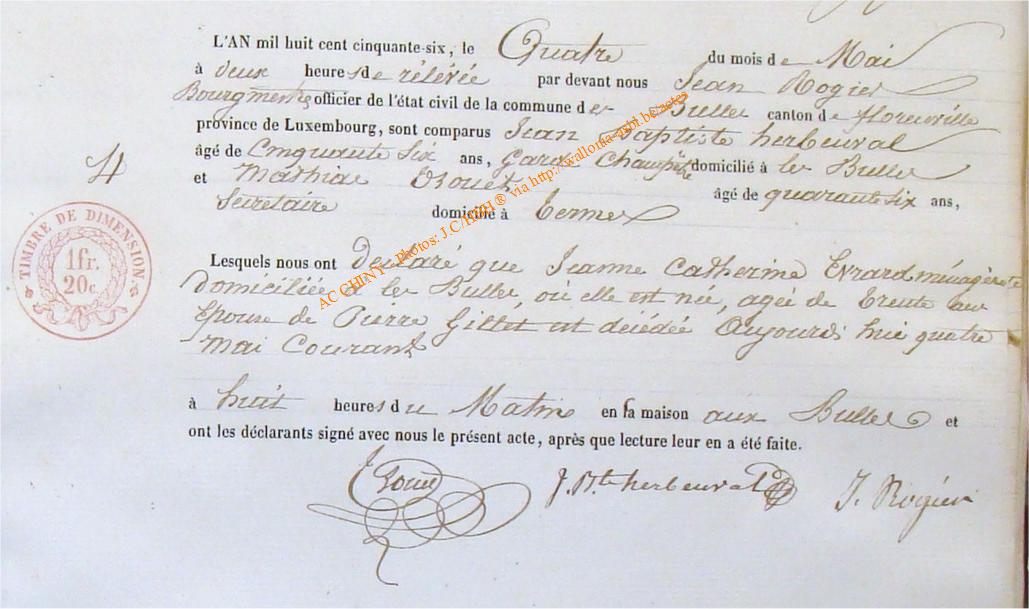 L'AN mil huit cent cinquante-six, le Quatre du mois de Mai
à deux heures de rélévée par devant nous Jean Rogier
Bourgmestre officier de l'état civil de la commune de les Bulles canton de florenville
province de Luxembourg, sont comparus Jean Baptiste herbeuval
âgé de Cinquante Six ans, Garde Champêtre domicilié à les Bulles
et Mathias âgé de quarante six ans,
Sécretaire domicilié à Termes
4
TIMBRE DE DIMENSION
1 fr.
20c.
Lesquels nous ont déclaré que Jeanne Catherine Evrard, ménagère
Domiciliée à les Bulles, où elle est née, agée de trente ans
Epouse de Pierre Gillet est décédée Aujourd'hui quatre
Mai Courant
à huit heures du Matin en sa maison aux Bulles et
ont les déclarants signé avec nous le présent acte, après que lecture leur en a été faite.
J. Bte herbeuval J. Rogier
AC CHINY - Photos: J.C/HBH ® via http://wallonia-asbl.be/actes